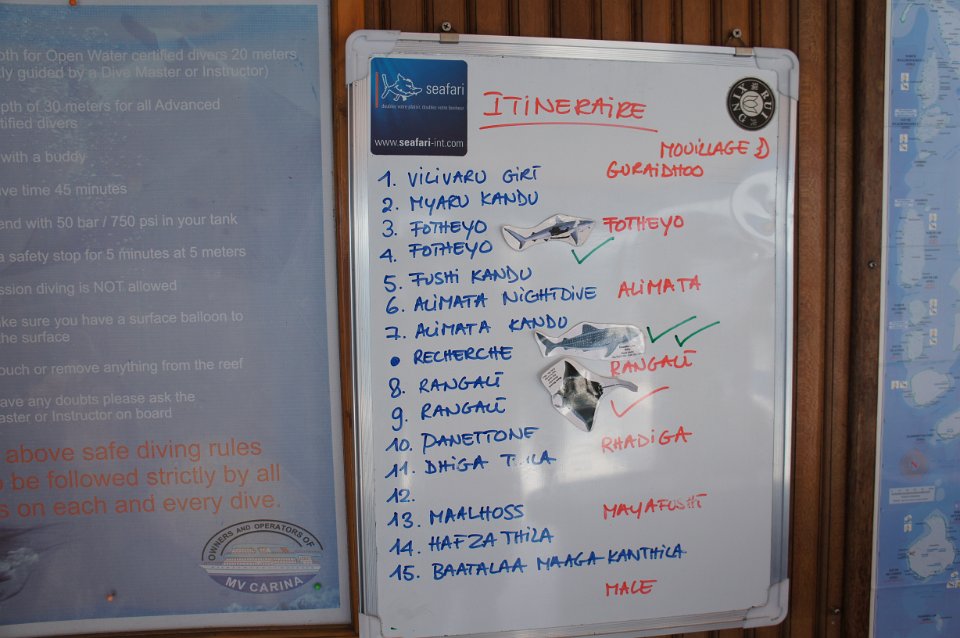 pth for Open Water certified divers 20 meters
tly guided by a Dive Master or Instructor)
epth of 30 meters for all Advanced
ertified divers
with a buddy
ive time 45 minutes
end with 50 bar / 750 psi in your tank
a safety stop for 5 minutes at 5 meters
ession diving is NOT allowed
ake sure you have a surface balloon to
the surface
ouch or remove anything from the reef
ave any doubts please ask the
Master or Instructor on board
above safe diving rules
o be followed strictly by all
s on each and every dive.
OWNERS AND OPERATORS OF
MV CARINA
seafari
www.seafari-int.com
ITINERAIRE
MOUILLAGE
1. VILIVARU GIRI GURAIDHOO
2. MYARU KANDU
3. FOTHEYO FOTHEYO
4. FOTHEYO
5. FUSHI KANDU
6. ALIMATA NIGHTDIVE ALIMATA
7. ALIMATA KANDU
• RECHERCHE RANGALI
8. RANGALI
9. RANGALI
10. PANETTONE RHADIGA
11. DHIGA
12.
13. MAALHOSS MAYAFUSHI
14. HAFZA THILA
15. BAATALAA MAAGA KANTHILA
MALE